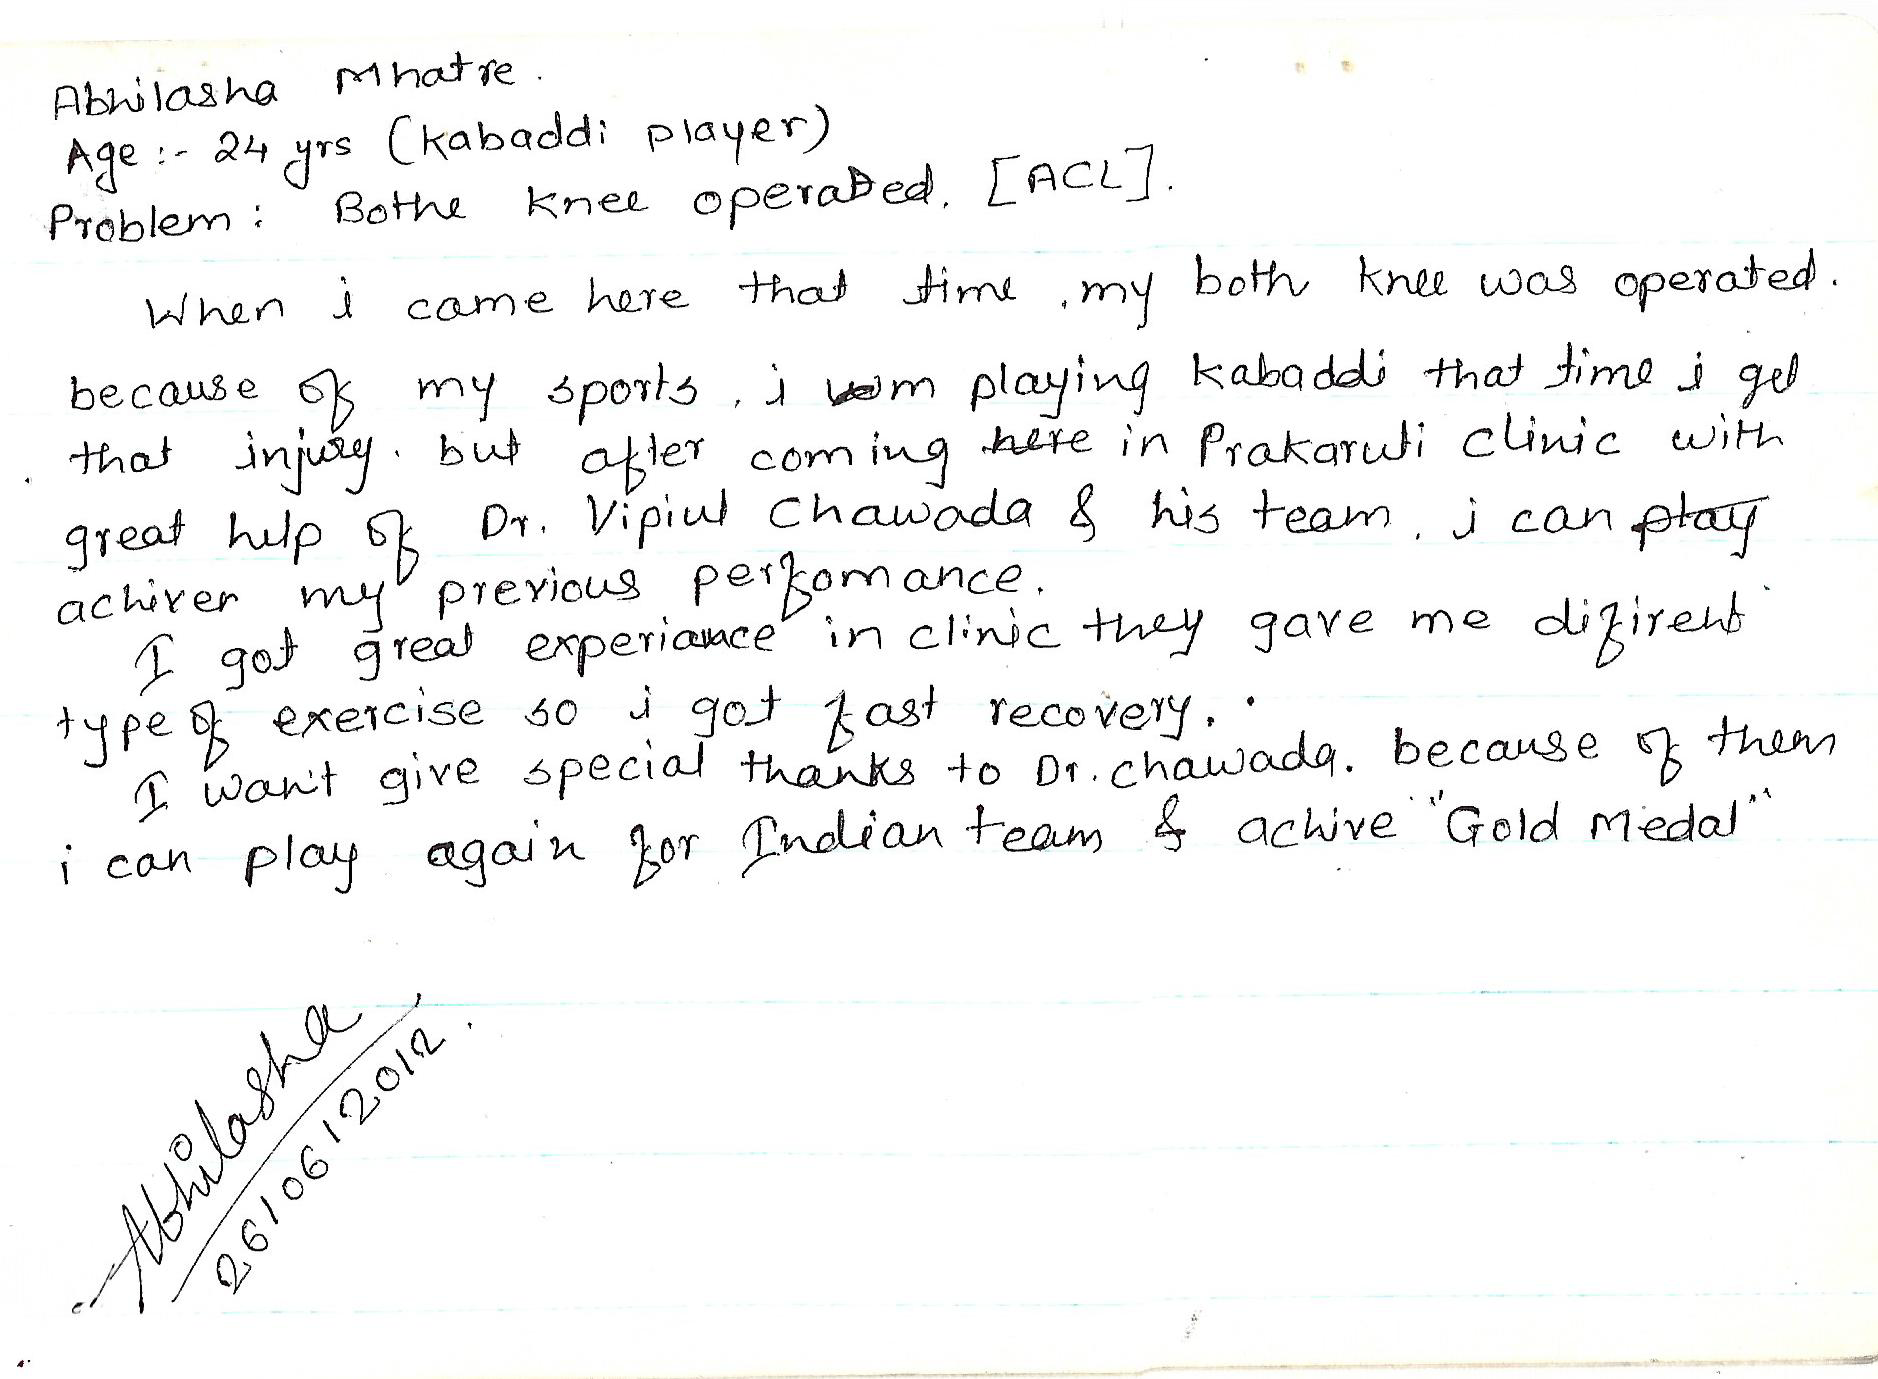 Abhilasha Mhatre.
Age :- 24 yrs (kabaddi player)
Problem : Bothe knee operated. [ACL].
When i came here that time , my both knee was operated.
because of my sports , i wom playing kabaddi that time i get
that injury. but after coming here in Prakaruti clinic with
great help of Dr. Vipiul Chawada & his team, i can play
achiver my previous perfomance.
I got great experiance in clinic they gave me difirent
type of exercise so i got fast recovery.
I wan't give special thanks to Dr. chawada. because of them
i can play again for Indian team & achive "Gold Medal"
Abhilasha
26/06/2012.